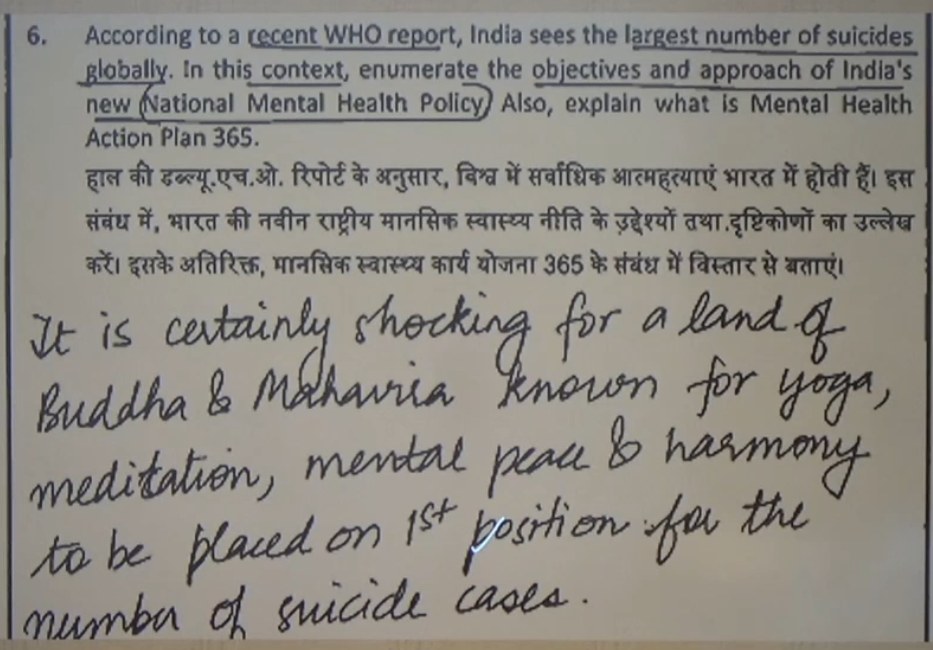 6. According to a recent WHO report, India sees the largest number of suicides
globally. In this context, enumerate the objectives and approach of India's
new National Mental Health Policy. Also, explain what is Mental Health
Action Plan 365.
हाल की डब्ल्यू.एच.ओ. रिपोर्ट के अनुसार, विश्व में सर्वाधिक आत्महत्याएं भारत में होती हैं। इस
संबंध में, भारत की नवीन राष्ट्रीय मानसिक स्वास्थ्य नीति के उद्देश्यों तथा दृष्टिकोणों का उल्लेख
करें। इसके अतिरिक्त, मानसिक स्वास्थ्य कार्य योजना 365 के संबंध में विस्तार से बताएं।
It is certainly shocking for a land of
Buddha & Mahavira known for yoga,
meditation, mental peace & harmony
to be placed on 1st position for the
number of suicide cases.